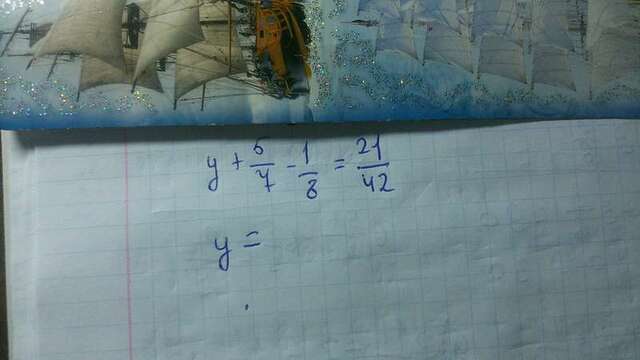 y + 6/4 - 1/8 = 21/42
y =